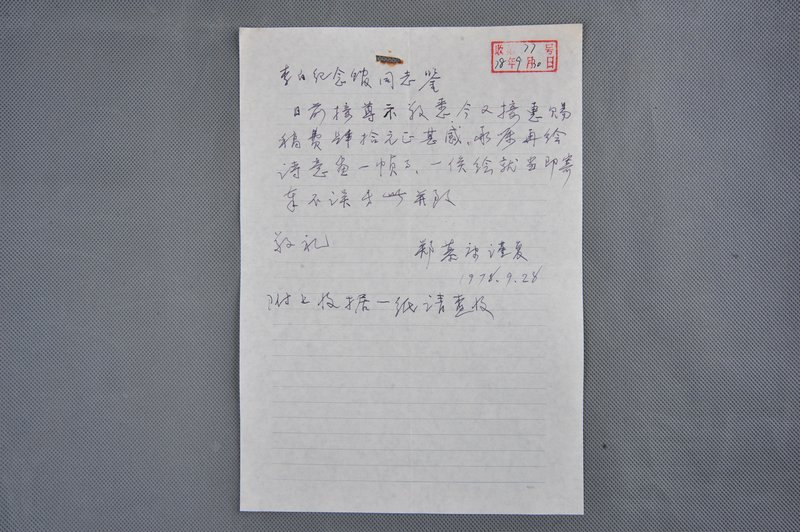 收 77 号
78年9月30日
李白纪念馆同志鉴
日前接尊示敬悉今又接惠赐
稿费肆拾元正甚感 承屬再绘
诗意画一帧 一俟绘就当即寄
奉不误 专此 并致
敬礼
郑慕 谨复
1978.9.28
附上收据一纸请查收